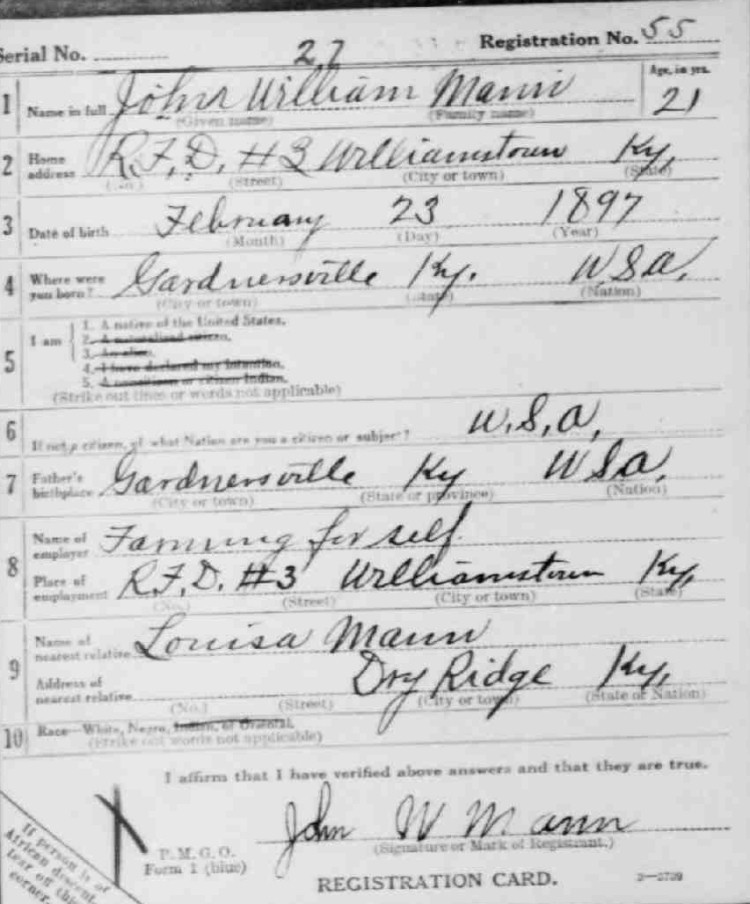 Serial No. 27 Registration No. 55
1 Name in full John William Mann Age, in yrs. 21
(Given name) (Family name)
2 Home address R.F.D. #3 Williamstown Ky.
(No.) (Street) (City or town) (State)
3 Date of birth February 23 1897
(Month) (Day) (Year)
4 Where were you born? Gardnersville Ky. USA.
(City or town) (State) (Nation)
5 I am
1. A native of the United States.
2. A naturalized citizen.
3. An alien.
4. I have declared my intention.
5. A noncitizen or citizen Indian.
(Strike out lines or words not applicable)
6 If not a citizen, of what Nation are you a citizen or subject? U.S.A.
7 Father's birthplace Gardnersville Ky USA.
(City or town) (State or province) (Nation)
8 Name of employer Farming for self
Place of employment R.F.D. #3 Williamstown Ky.
(No.) (Street) (City or town) (State)
9 Name of nearest relative Louisa Mann
Address of nearest relative Dry Ridge Ky.
(No.) (Street) (City or town) (State or Nation)
10 Race—White, Negro, Indian, or Oriental.
(Strike out words not applicable)
I affirm that I have verified above answers and that they are true.
John W Mann
P. M. G. O.
Form 1 (blue)
(Signature or Mark of Registrant.)
REGISTRATION CARD.
If person is of
African descent,
tear off this
corner.